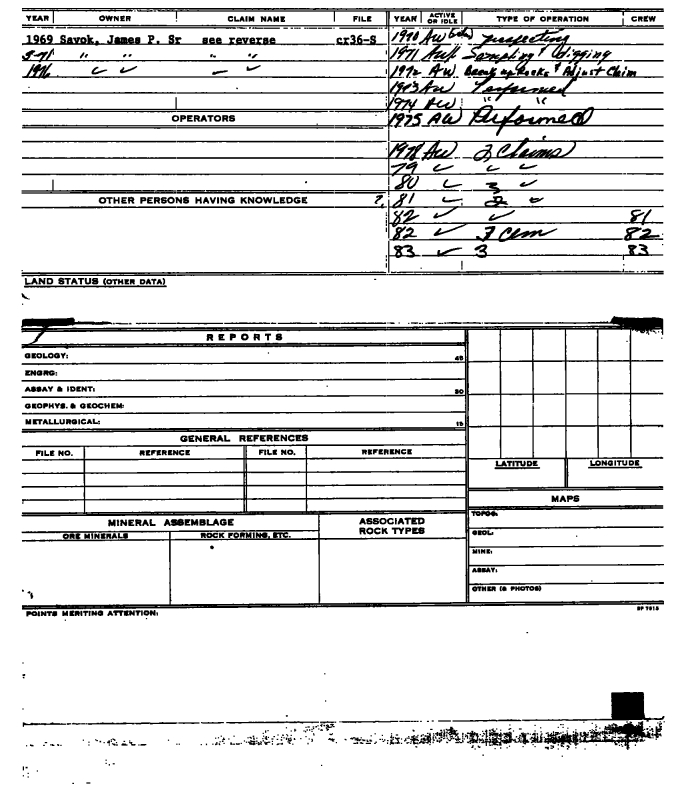 YEAR OWNER CLAIM NAME FILE
1969 Savok, James P. Sr see reverse cr36-S
9-71 " " " "
1976
OPERATORS
OTHER PERSONS HAVING KNOWLEDGE ?
YEAR ACTIVE OR IDLE TYPE OF OPERATION CREW
1970 AW prospecting
1971 AW Sampling & digging
1972 AW Broke up Rocks & Adjust Claim
1973 AW Performed
1974 AW " "
1975 AW Performed
1978 AW 3 Claims
79 ✓ ✓ ✓
80 ✓ 3 ✓
81 ✓
82 ✓ ✓ 81
82 ✓ 3 Clem 82
83 ✓ 3 83
LAND STATUS (OTHER DATA)
REPORTS
GEOLOGY: 45
ENGRG:
ASSAY & IDENT: 30
GEOPHYS. & GEOCHEM:
METALLURGICAL: 15
GENERAL REFERENCES
FILE NO. REFERENCE FILE NO. REFERENCE
LATITUDE LONGITUDE
MAPS
TOPOG.
GEOL:
MINE:
ASSAY:
OTHER (& PHOTOS)
MINERAL ASSEMBLAGE
ORE MINERALS ROCK FORMING, ETC.
ASSOCIATED ROCK TYPES
POINTS MERITING ATTENTION:
SP 7815